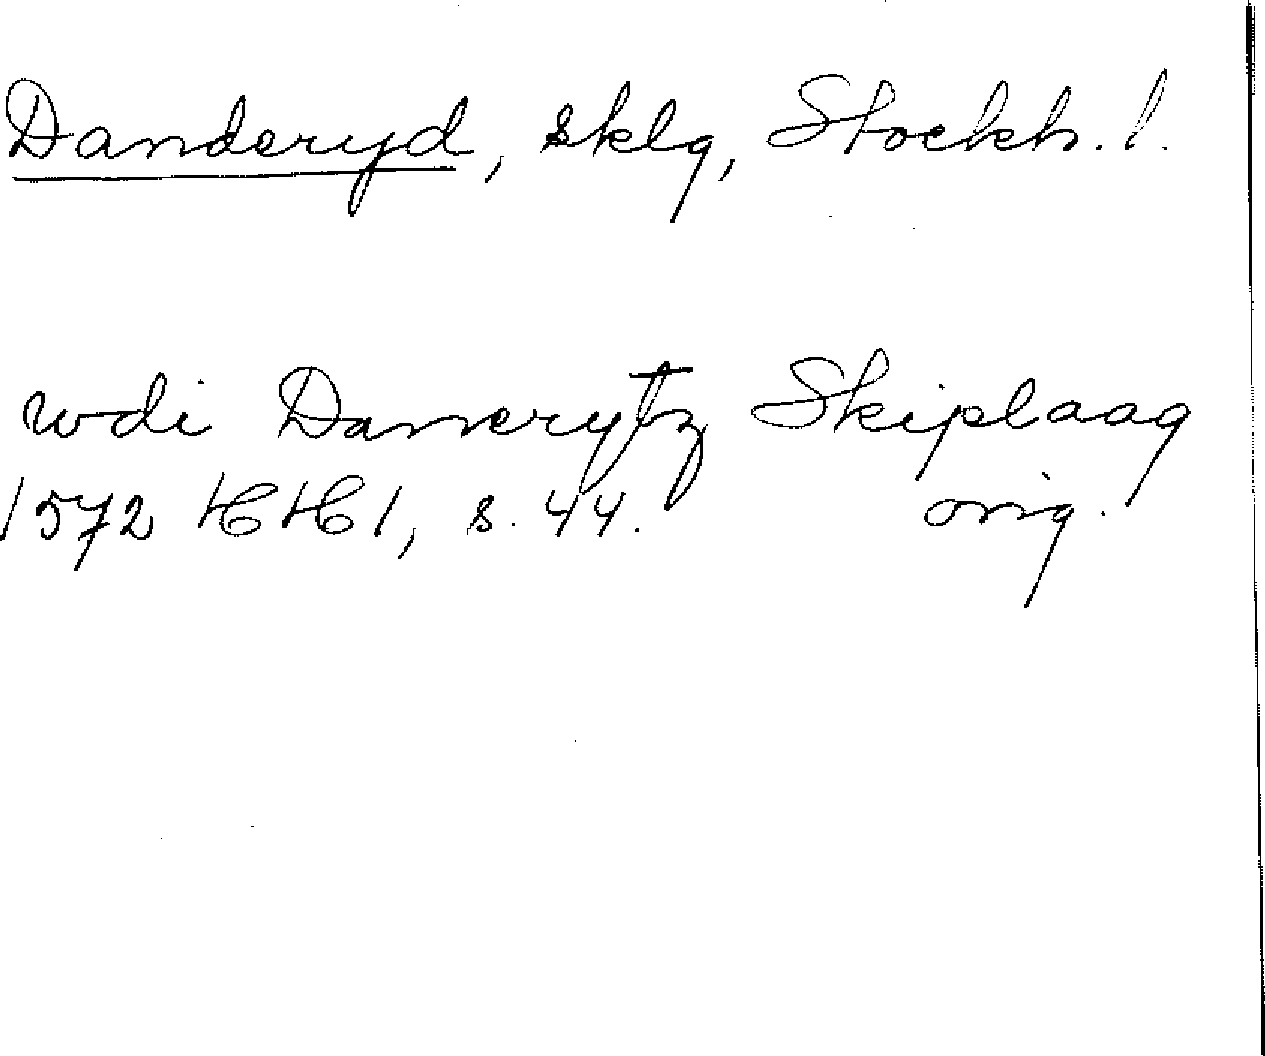 Danderyd, sklg, Stockh. l.
wdi Danerytz Skiplaag
1572 HH 1, s. 44. orig.